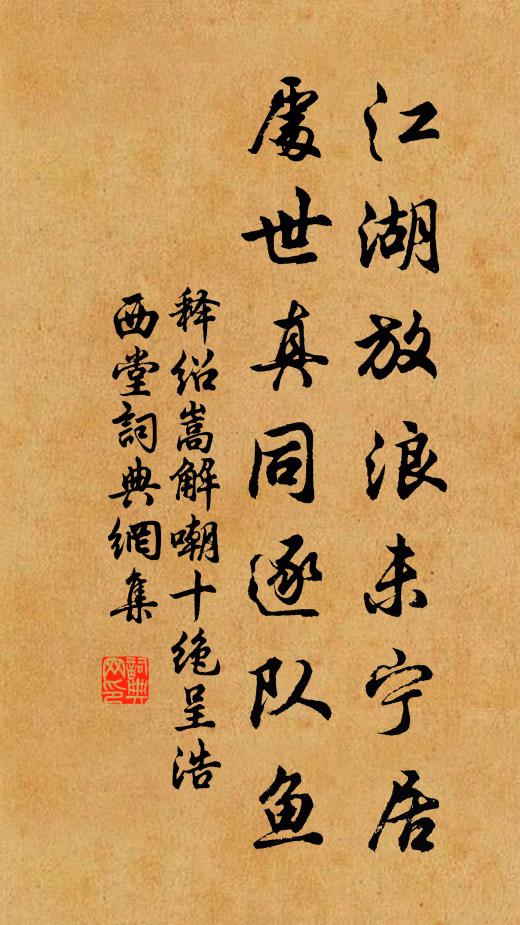 江湖放浪未宁居
處世真同逐队鱼
释绍嵩解嘲十绝呈浩
西堂詞典網集
詞典网印